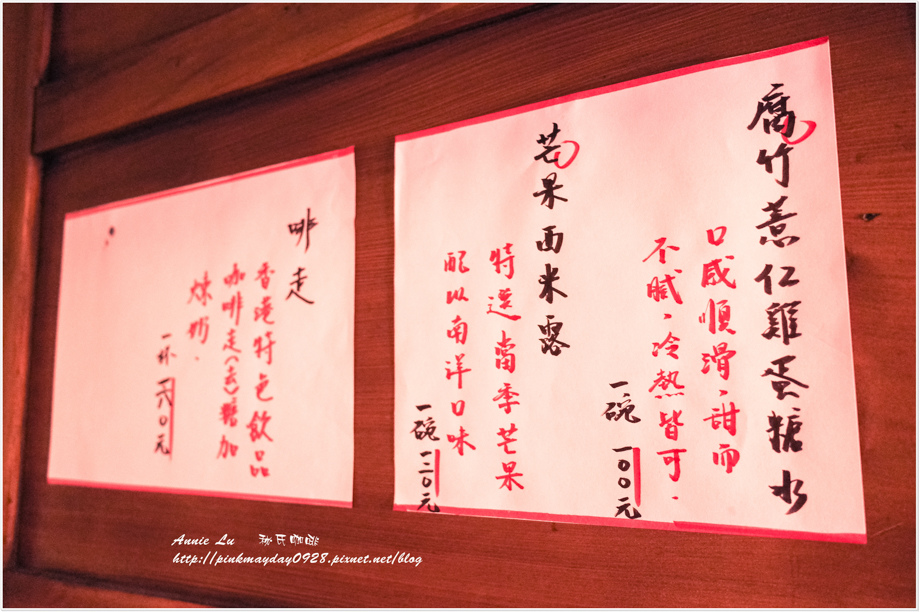 腐竹薏仁雞蛋糖水
口感順滑、甜而
不膩、冷熱皆可。
一碗 一００元
芒果西米露
特選當季芒果
配以南洋口味
一碗 一二０元
啡走
香港特色飲品
咖啡走(去)糖加
煉奶.
一杯 一六０元
Annie Lu 秘氏咖啡
http://pinkmayday0928.pixnet.net/blog